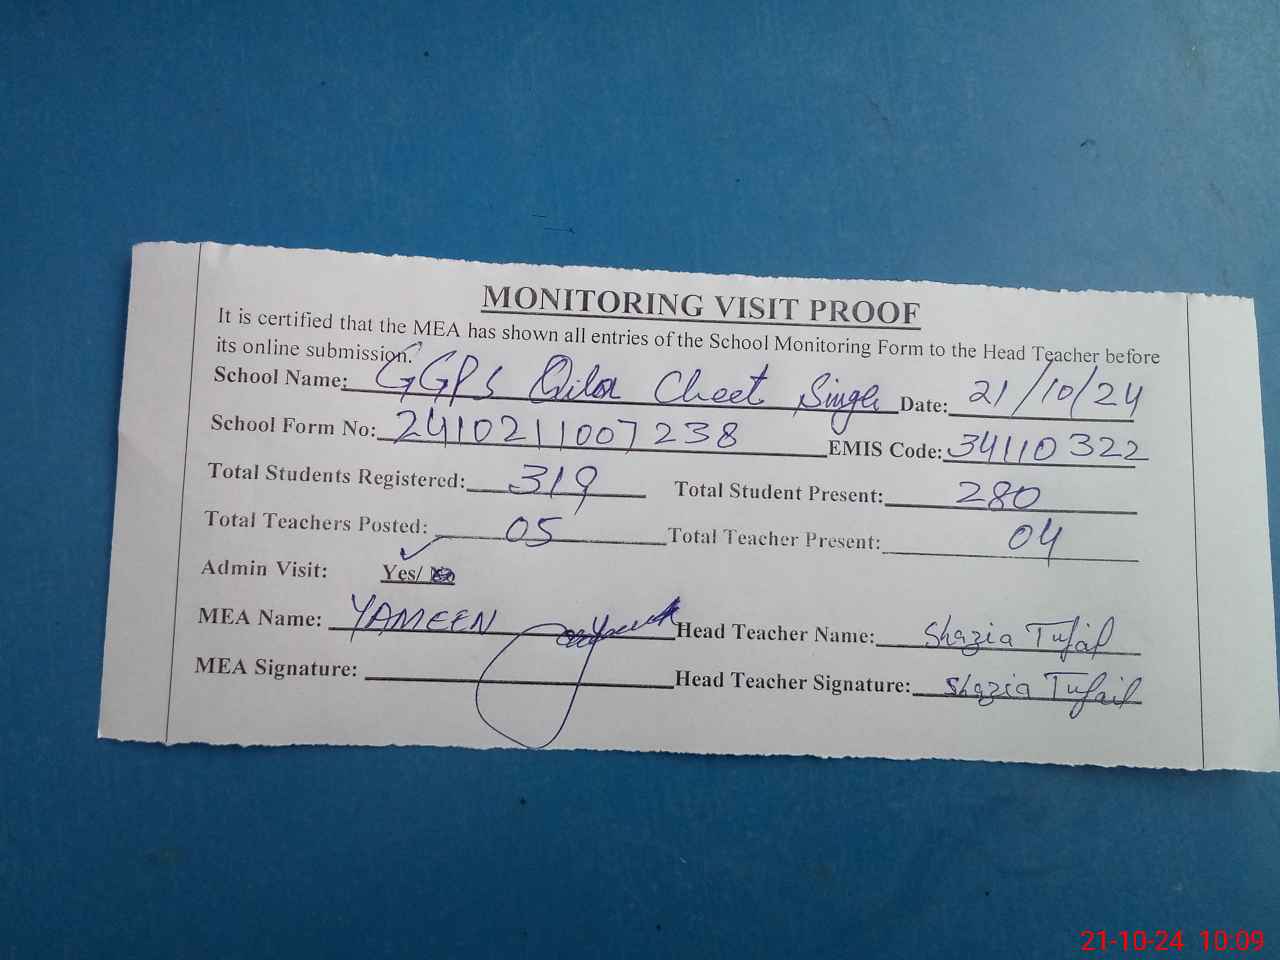 MONITORING VISIT PROOF
It is certified that the MEA has shown all entries of the School Monitoring Form to the Head Teacher before
its online submission.
School Name: GGPS Qila Cheet Singh Date: 21/10/24
School Form No: 2410211007238 EMIS Code: 34110322
Total Students Registered: 319 Total Student Present: 280
Total Teachers Posted: 05 Total Teacher Present: 04
Admin Visit: Yes/
MEA Name: YAMEEN Head Teacher Name: Shazia Tufail
MEA Signature: Head Teacher Signature: Shazia Tufail
21-10-24 10:09